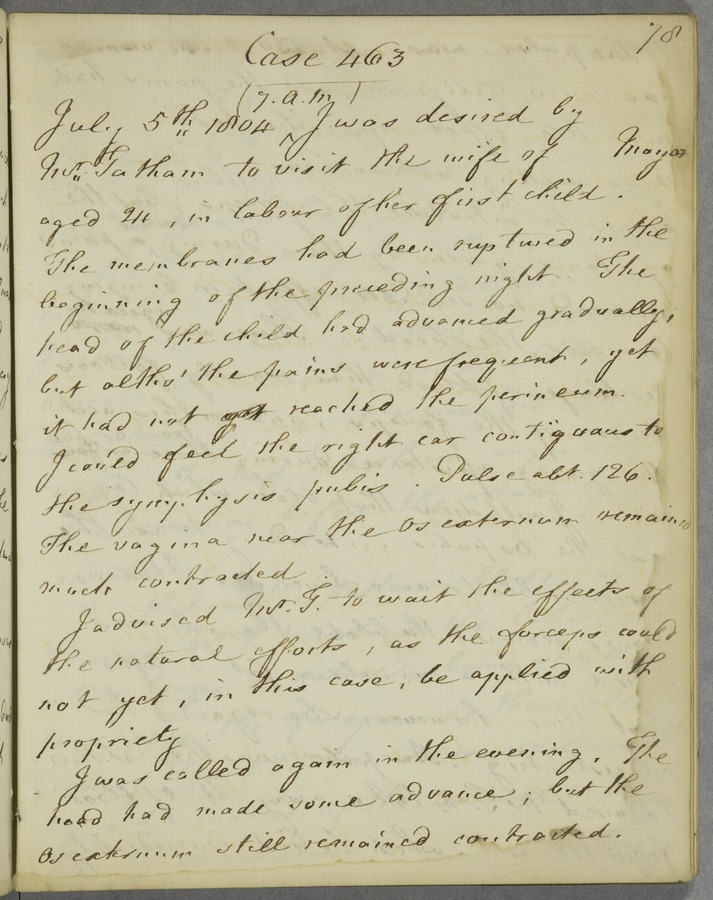 78
Case 463
(7. a.m)
July 5th 1804 ^ I was desired by
Mr. Tatham to visit the wife of Mayor
aged 24, in labour of her first child.
The membranes had been ruptured in the
beginning of the preceding night. The
head of the child had advanced gradually;
but altho' the pains were frequent, yet
it had not got reached the perineum.
I could feel the right ear contiguous to
the symphysis pubis. Pulse abt. 126.
The vagina near the Os externum remains
much contracted.
I advised Mr. T. to wait the effects of
the natural efforts, as the forceps could
not yet, in this case, be applied with
propriety
I was called again in the evening. The
head had made some advance; but the
Os externum still remained contracted.